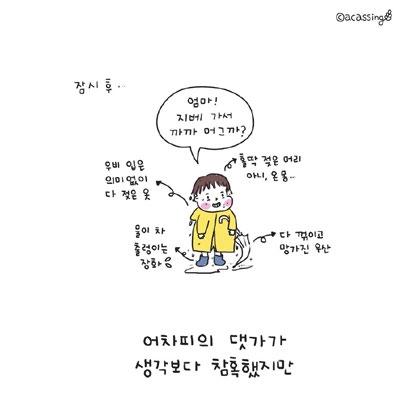 ©acassing
잠시 후..
엄마!
지베 가서
까까 머그까?
우비 입은
의미없이
다 젖은 옷
홀딱 젖은 머리
아니, 온몸..
물이 차
출렁이는
장화
다 꺾이고
망가진 우산
어차피의 댓가가
생각보다 참혹했지만